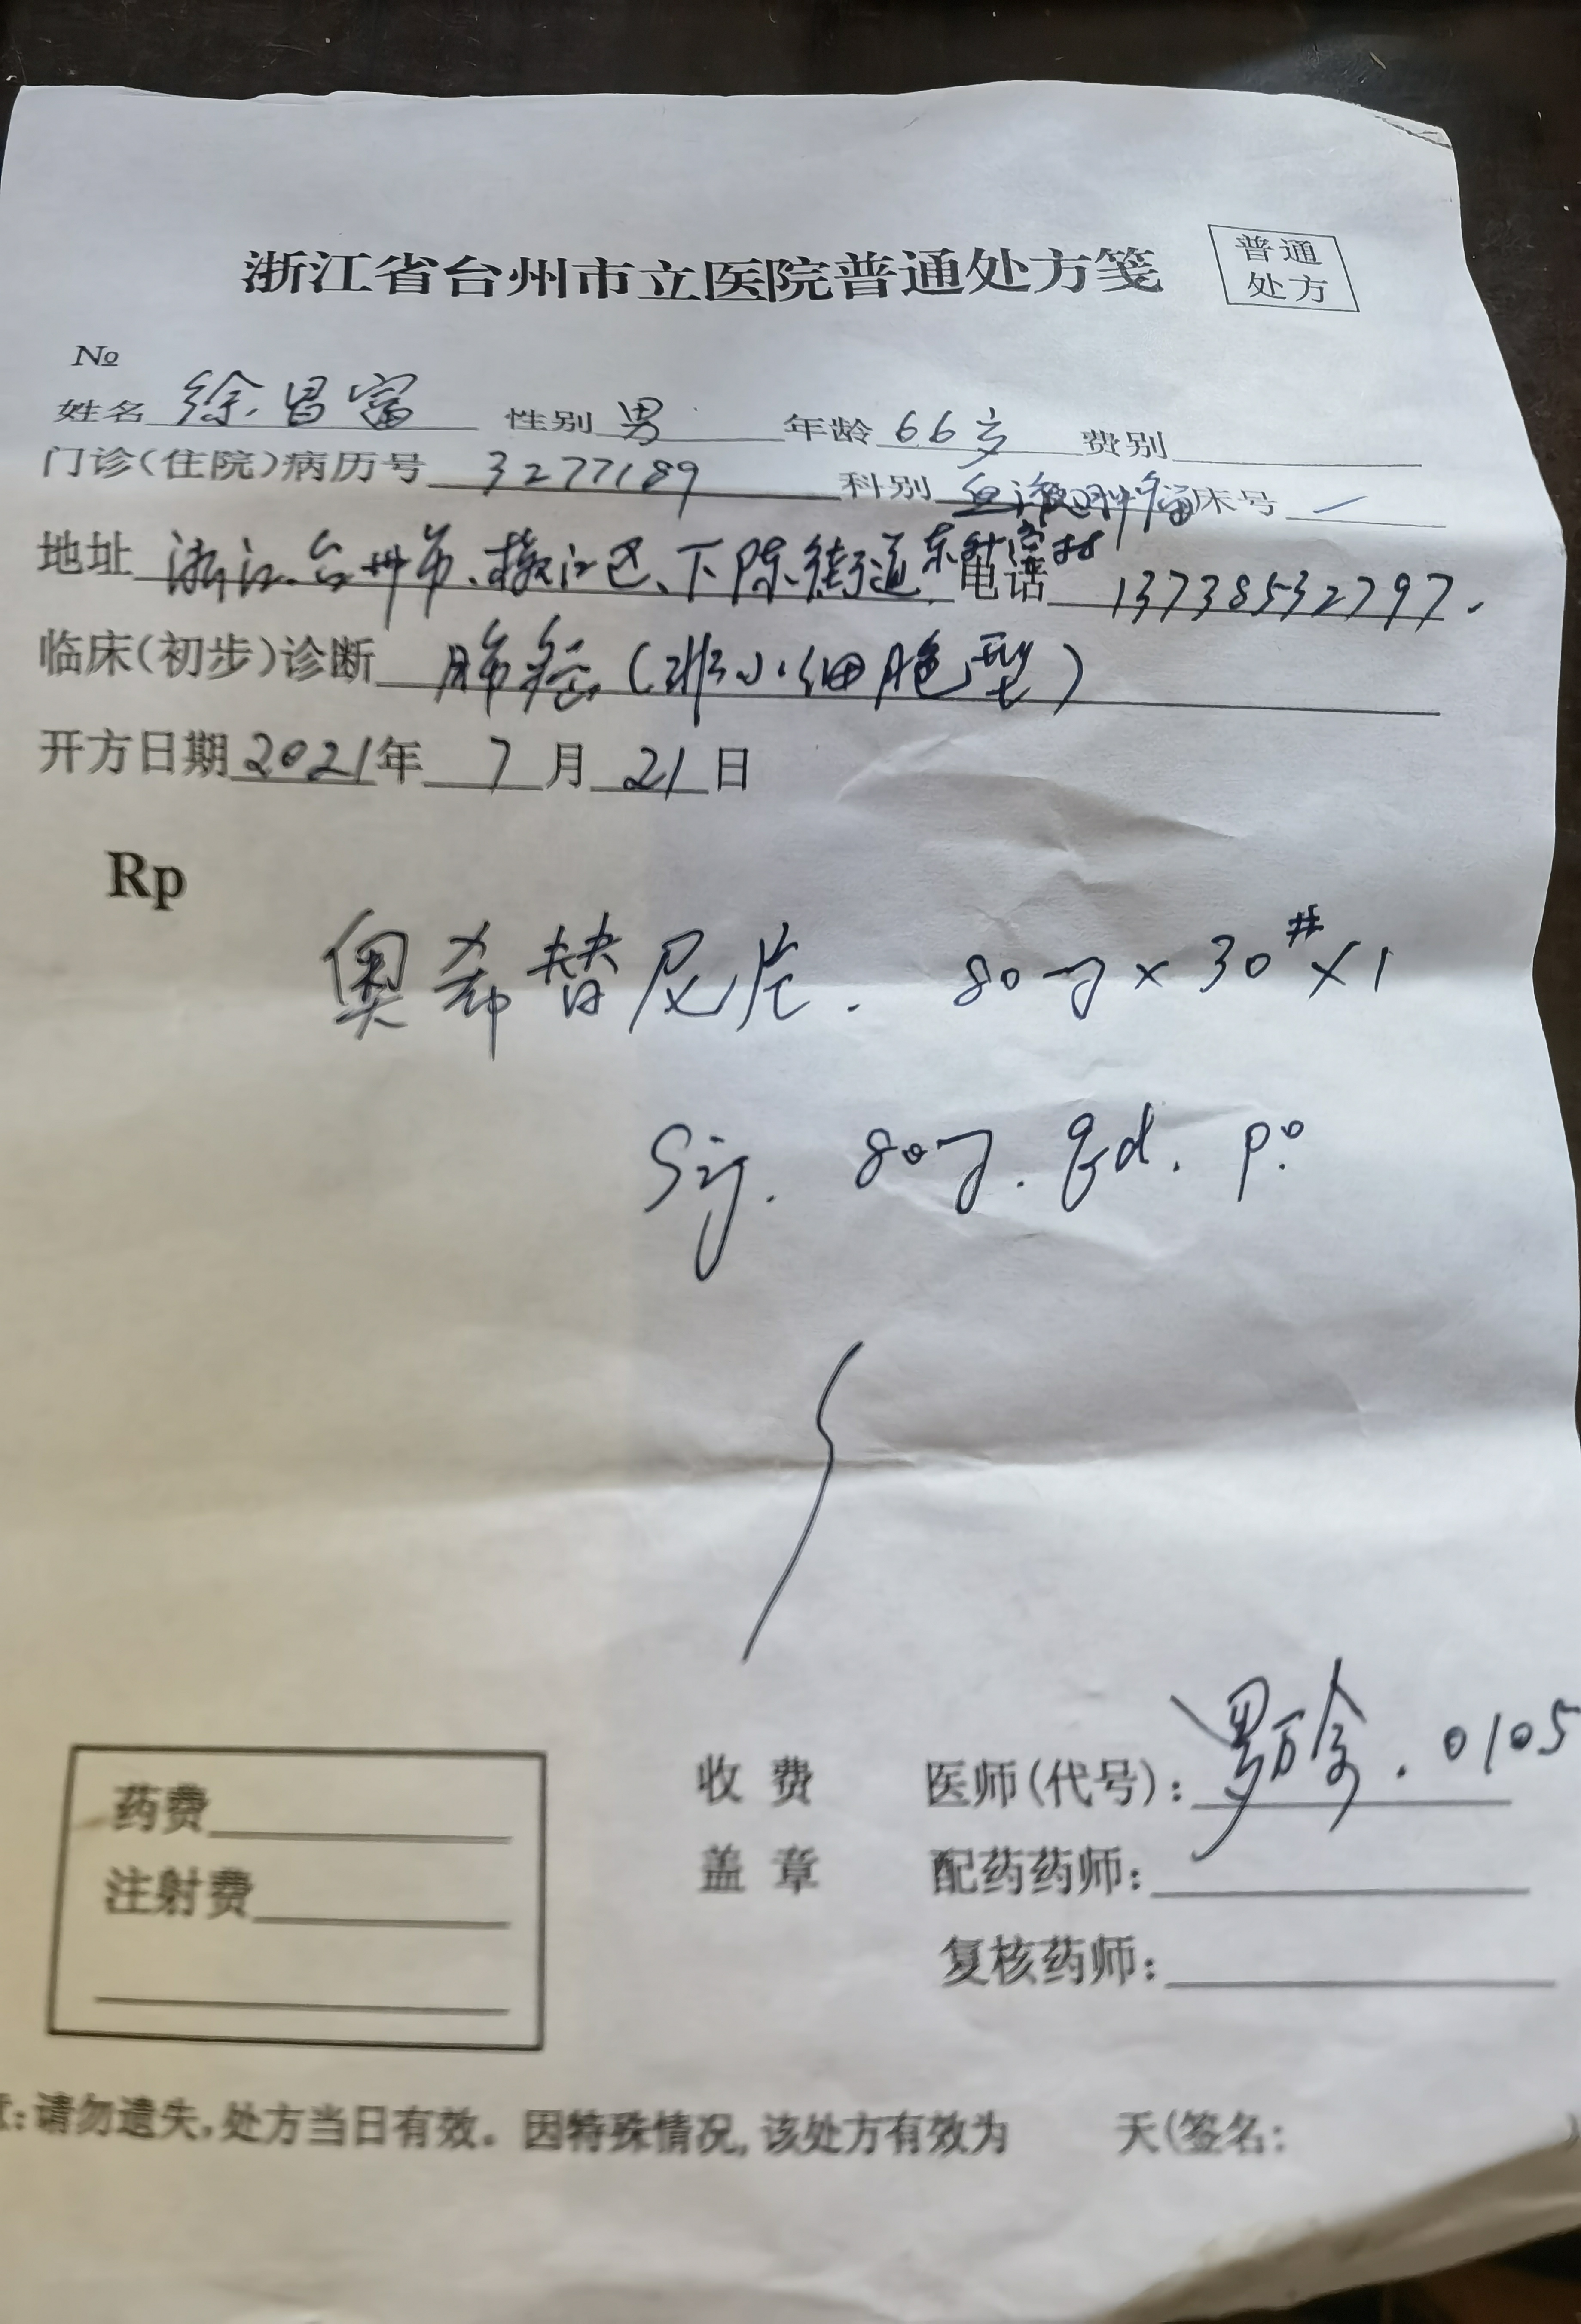 浙江省台州市立医院普通处方笺
普通
处方
№
姓名 徐昌富 性别 男 年龄 66岁 费别
门诊(住院)病历号 3277189 科别 血液肿瘤 床号 /
地址 浙江台州市、椒江区、下陈街道 电话 13738532797.
临床(初步)诊断 肺癌(非小细胞型)
开方日期 2021年 7月 21日
Rp
奥希替尼片. 80mg×30#×1
Sig. 80mg. qd. p.o
药费
注射费
收费
盖章
医师(代号): 0105
配药药师:
复核药师:
:请勿遗失,处方当日有效。因特殊情况,该处方有效为 天(签名: )